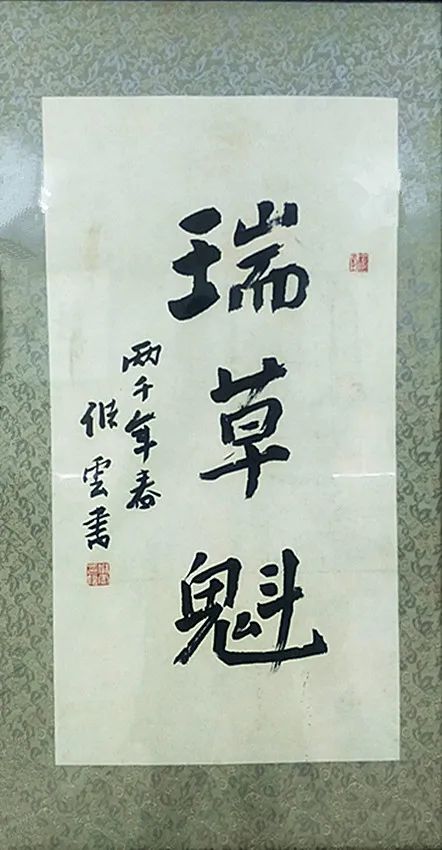 瑞草魁
兩千年春
維雲書